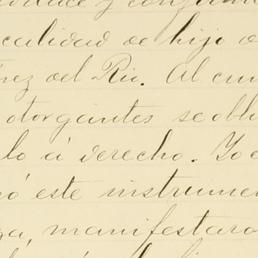 calidad de hijo
del Rio. Al cum
otorgantes se obli
lo á derecho. Yo
este instrumen
manifestaro